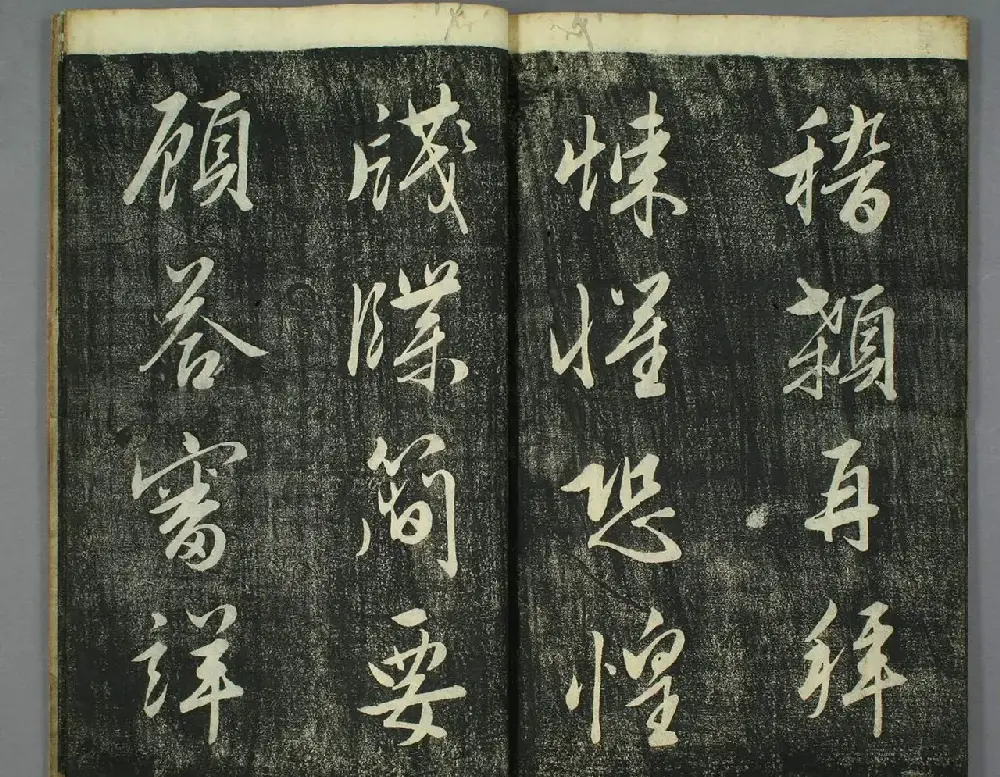 稽顙再拜
悚懼恐惶
牋牒簡要
顧答審詳